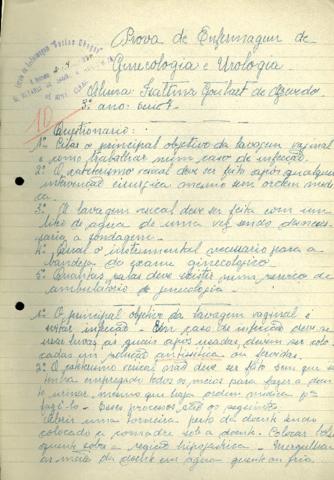 Escola de Enfermagem "Carlos Chagas"
Prova de Enfermagem de
Ginecologia e Urologia.
Aluna: Goulart de Azevedo.
3º ano:
10
Questionario:
1º Citar o principal objetivo da lavagem vaginal
e como trabalhar num caso de infecção.
2º O cateterismo vesical deve ser feito após qualquer
intervenção cirurgica mesmo sem ordem médi-
ca.
3º A lavagem vesical deve ser feita com um
litro de agua de uma vez sendo desneces-
saria a sondagem.
4º Qual o instrumental necessario para a
bandeja de exame ginecológico.
5º Quantas salas deve existir num serviço de
ambulatorio de ginecologia.
1º O principal objetivo da lavagem vaginal é
evitar infecção. Em caso de infecção deve-se
usar luvas as quais apos usadas, devem ser colo-
cadas em solução antisética ou fervidas.
2º O cateterismo vesical não deve ser feito sem que se
tenha empregado todos os meios para fazer a doen-
te urinar, mesmo que haja ordem médica pª
fazê-lo. Esses processos são os seguintes:
Abrir uma torneira perto da doente tendo
colocado a comadre sob a doente. Colocar bolsa
quente sobre a região hipogastrica. Mergulhar
as mãos da doente em agua quente ou fria.